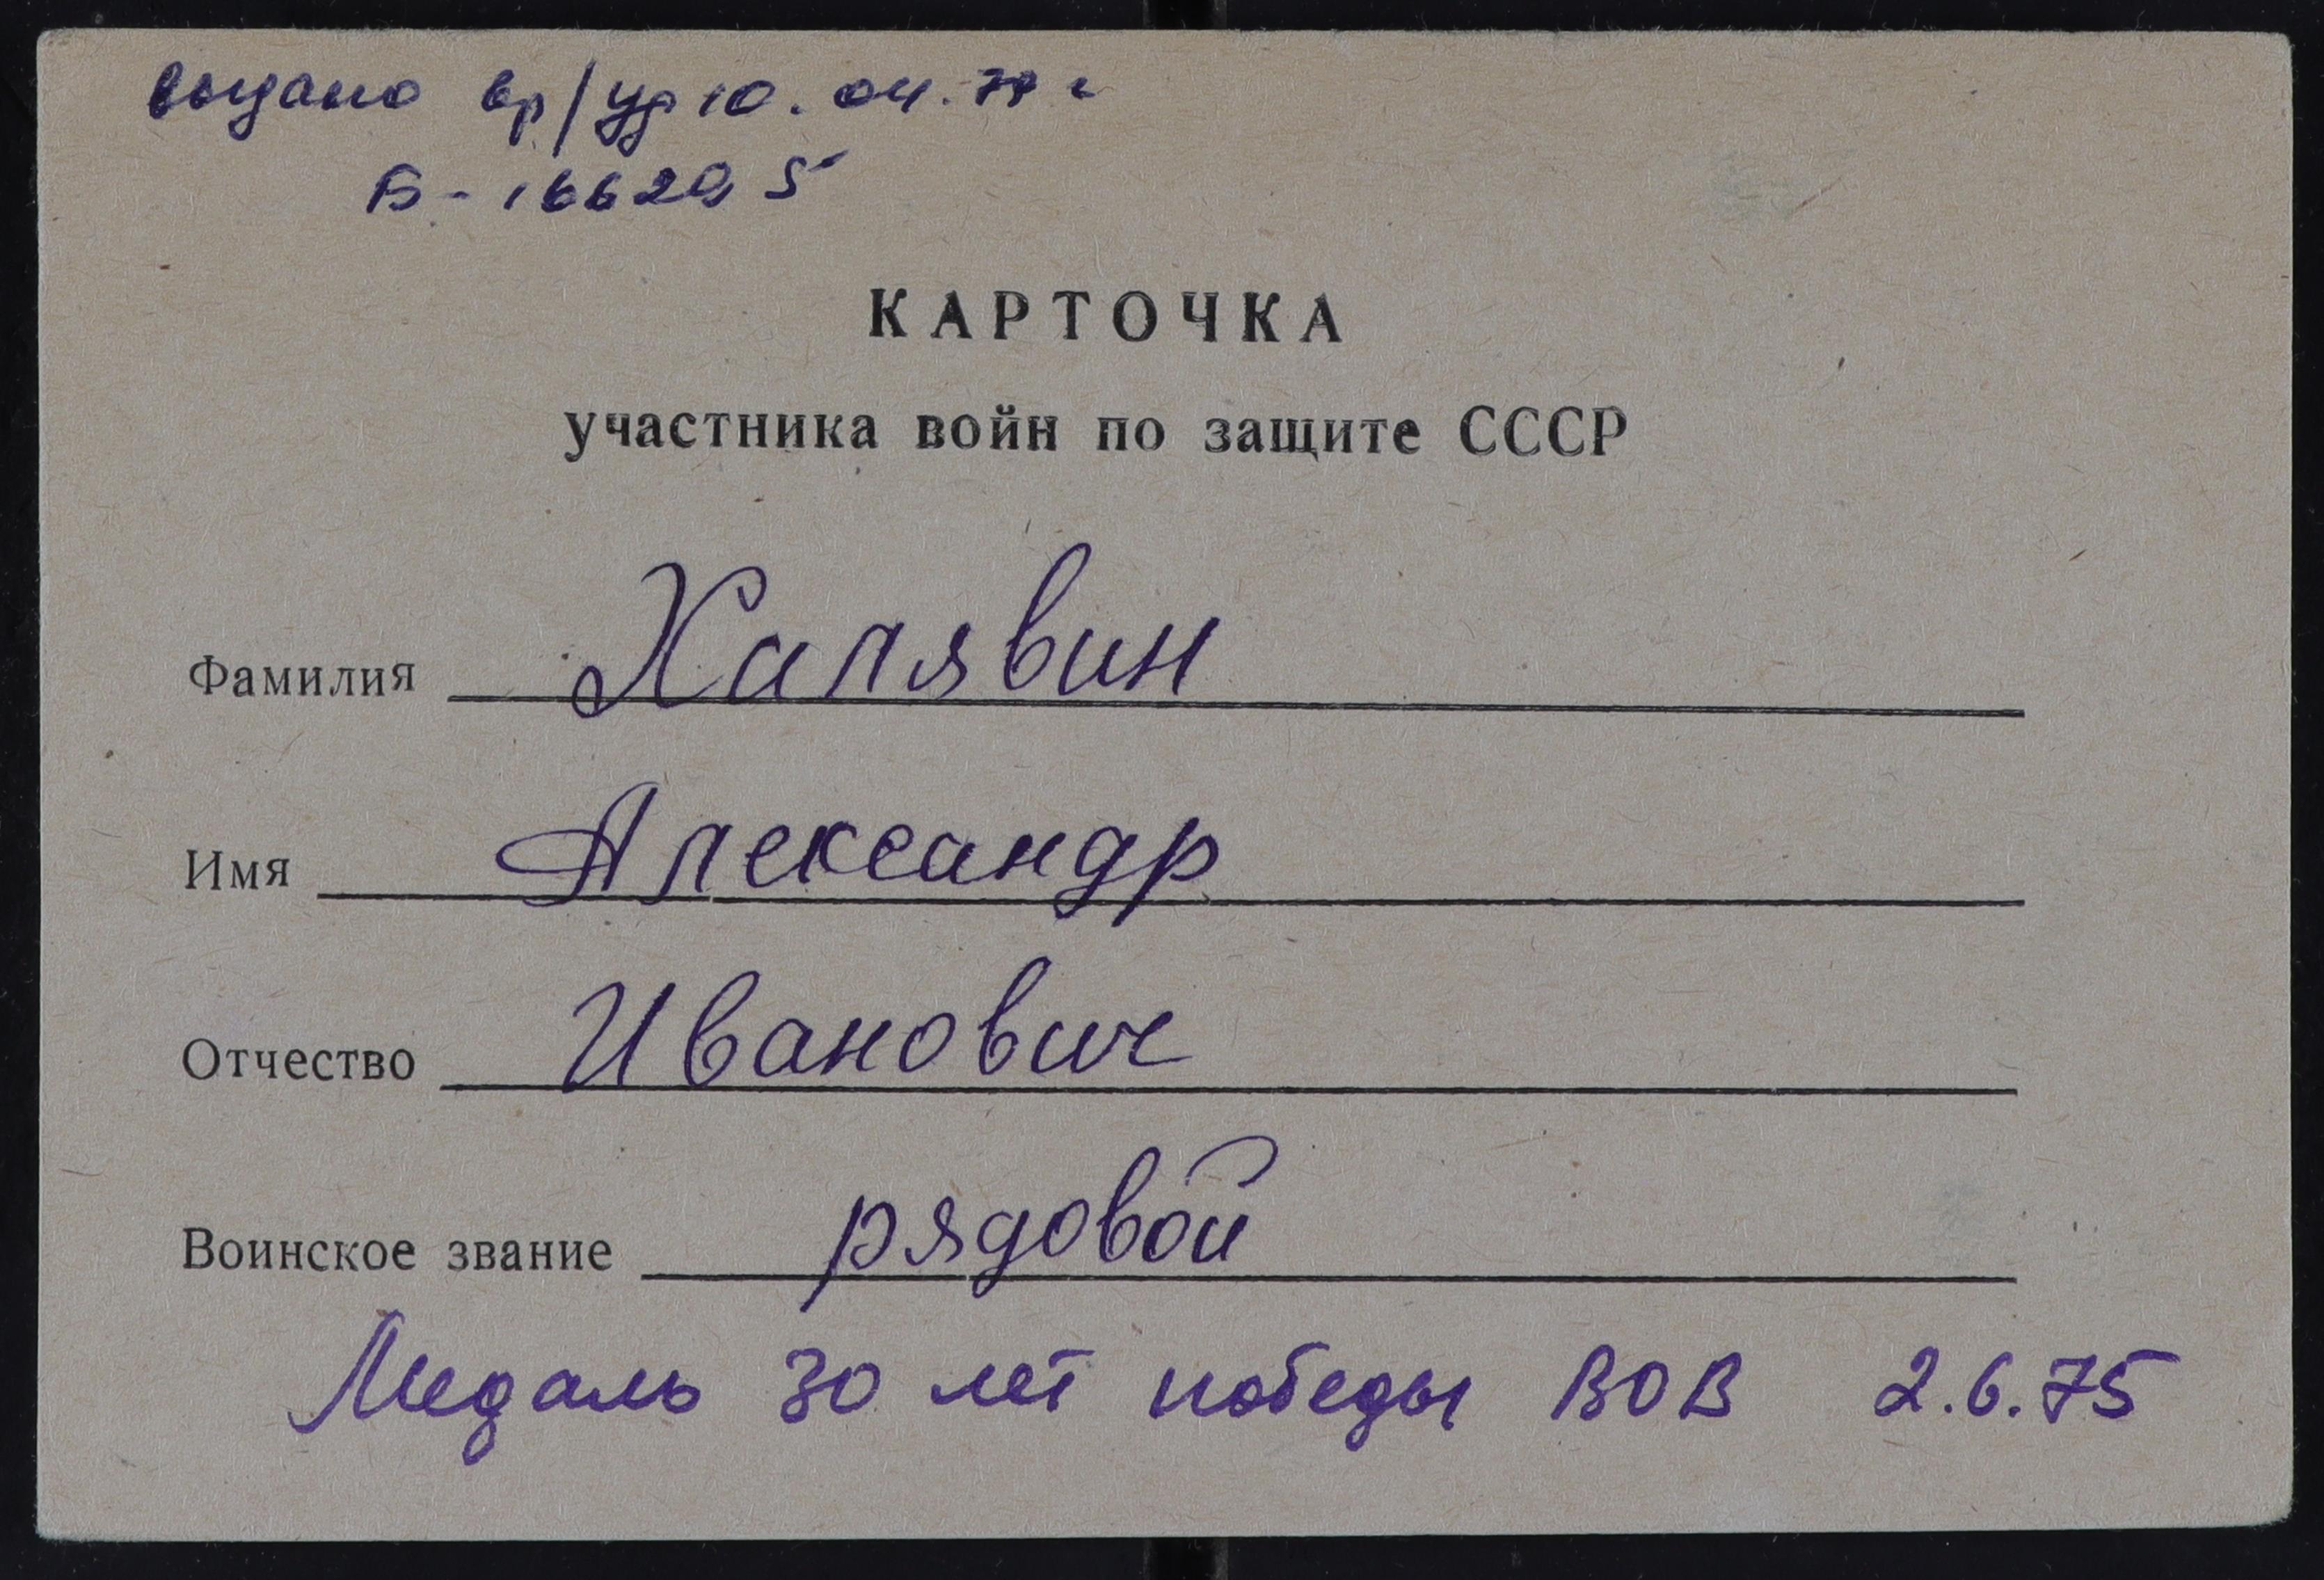 выдано вр/уд 10.04.79 г
Б-166295
КАРТОЧКА
участника войн по защите СССР
Фамилия Халявин
Имя Александр
Отчество Иванович
Воинское звание рядовой
Медаль 30 лет победы ВОВ 2.6.75